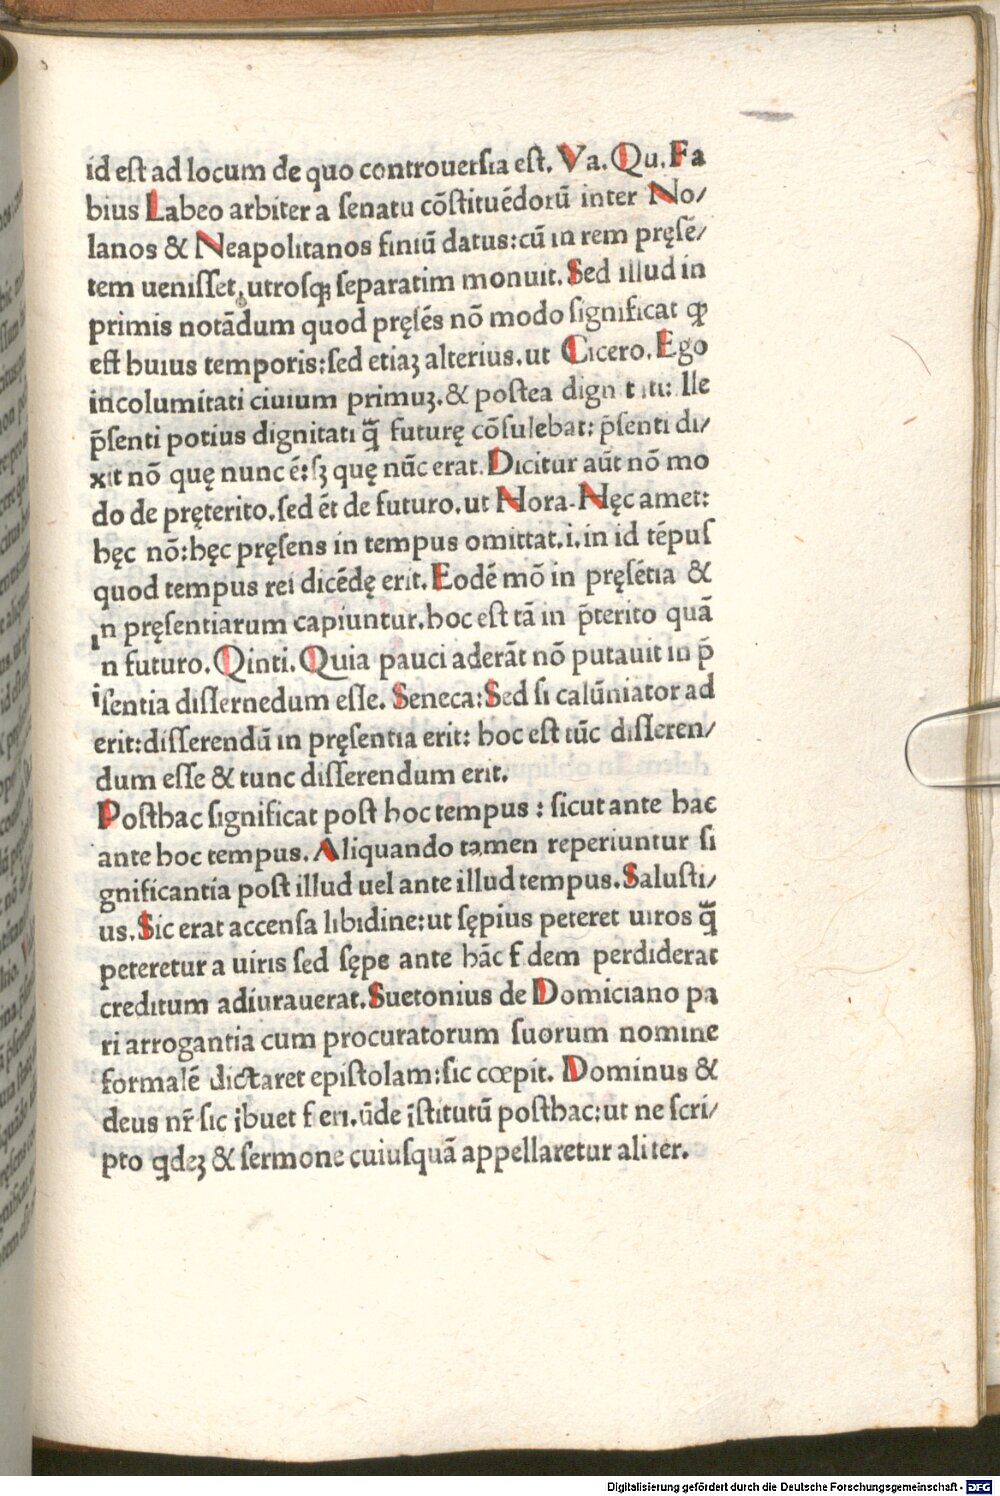 id est ad locum de quo controuersia est. Va. Qu. Fa
bius Labeo arbiter a senatu cōstituēdorū inter No/
lanos & Neapolitanos finiū datus: cū in rem pręsē/
tem uenisset, utrosqȝ separatim monuit. Sed illud in
primis notādum quod pręsēs nō modo significat ꝙ
est huius temporis: sed etiaȝ alterius. ut Cicero. Ego
incolumitati ciuium primuȝ. & postea dign t iti: Ile
p̄senti potius dignitati q̄ futurę cōsulebat: p̄senti di/
xit nō quę nunc ē: sȝ quę nūc erat. Dicitur aūt nō mo
do de pręterito. sed ēt de futuro. ut Hora. Hęc amet:
hęc nō: hęc pręsens in tempus omittat. i. in id tēpus
quod tempus rei dicēdę erit. Eodē mō in pręsētia &
in pręsentiarum capiuntur. hoc est tā in p̄terito quā
n futuro. Qinti. Quia pauci aderāt nō putauit in p̄
isentia dissernedum esse. Seneca: Sed si calūniator ad
erit: disserendū in pręsentia erit: hoc est tūc disseren/
dum esse & tunc disserendum erit.
Posthac significat post hoc tempus: sicut ante hac
ante hoc tempus. Aliquando tamen reperiuntur si
gnificantia post illud uel ante illud tempus. Salusti/
us. Sic erat accensa libidine: ut sępius peteret uiros q̄
peteretur a uiris sed sępe ante hāc f dem perdiderat
creditum adiurauerat. Suetonius de Domiciano pa
ri arrogantia cum procuratorum suorum nomine
formalē dictaret epistolam: sic cœpit. Dominus &
deus nr̄ sic ībuet f eri. ūde īstitutū posthac: ut ne scri/
pto qdeȝ & sermone cuiusquā appellaretur aliter.
Digitalisierung gefördert durch die Deutsche Forschungsgemeinschaft - DFG